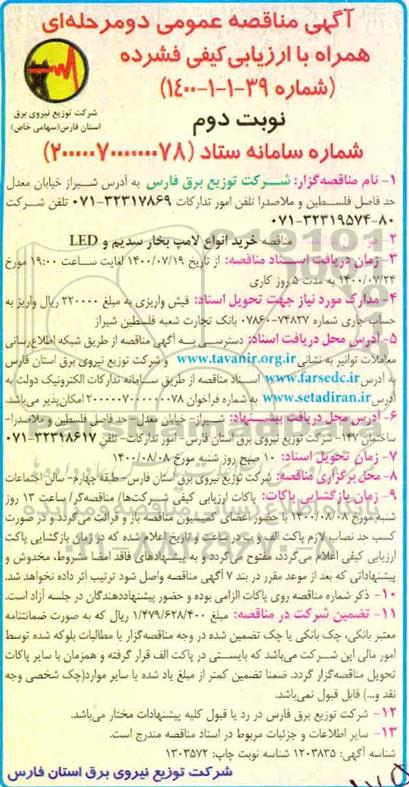 آگهی مناقصه عمومی دو مرحله‌ای
همراه با ارزیابی کیفی فشرده
(شماره ۳۹-۱-۱-۱۴۰۰)
نوبت دوم
شماره سامانه ستاد (۲۰۰۰۰۰۷۰۰۰۰۰۰۷۸)
شرکت توزیع نیروی برق
استان فارس(سهامی خاص)
۱- نام مناقصه‌گزار: شرکت توزیع برق فارس به آدرس شیراز خیابان معدل
حد فاصل فلسطین و ملاصدرا تلفن امور تدارکات ۳۲۳۱۷۸۶۹-۰۷۱ تلفن شرکت
۸۰-۳۲۳۱۹۵۷۴-۰۷۱
۲- مناقصه خرید انواع لامپ بخار سدیم و LED
۳- زمان دریافت اسناد مناقصه: از تاریخ ۱۴۰۰/۰۷/۱۹ لغایت ساعت ۱۹:۰۰ مورخ
۱۴۰۰/۰۷/۲۴ به مدت ۵ روز کاری
۴- مدارک مورد نیاز جهت تحویل اسناد: فیش واریزی به مبلغ ۲۲۰۰۰۰ ریال واریز به
حساب جاری شماره ۷۴۸۲۷-۰۷۸۶۰ بانک تجارت شعبه فلسطین شیراز
۵- آدرس محل دریافت اسناد: دسترسی به آگهی مناقصه از طریق شبکه اطلاع‌رسانی
معاملات توانیر به نشانی www.tavanir.org.ir و شرکت توزیع نیروی برق استان فارس
به آدرس www.farsedc.ir اسناد مناقصه از طریق سامانه تدارکات الکترونیک دولت به
آدرس www.setadiran.ir به شماره فراخوان ۲۰۰۰۰۰۷۰۰۰۰۰۰۷۸ امکان‌پذیر می‌باشد.
۶- آدرس محل دریافت پیشنهاد: شیراز- خیابان معدل- حد فاصل فلسطین و ملاصدرا-
ساختمان ۱۴۷- شرکت توزیع نیروی برق استان فارس- امور تدارکات- تلفن ۳۲۳۱۸۶۱۷-۰۷۱
۷- زمان تحویل اسناد: ۱۰ صبح روز شنبه مورخ ۱۴۰۰/۰۸/۰۸
۸- محل برگزاری مناقصه: شرکت توزیع نیروی برق استان فارس- طبقه چهارم- سالن اجتماعات
۹- زمان بازگشایی پاکات: پاکات ارزیابی کیفی شرکت‌ها/ مناقصه‌گر/ ساعت ۱۳ روز
شنبه مورخ ۱۴۰۰/۰۸/۰۸ با حضور اعضای کمیسیون مناقصه باز و قرائت می‌گردد و در صورت
کسب حد نصاب لازم پاکت الف و ب در ساعت و تاریخ اعلام شده که در زمان بازگشایی پاکت
ارزیابی کیفی اعلام می‌گردد، مفتوح می‌گردد و به پیشنهادهای فاقد امضا مشروط، مخدوش و
پیشنهاداتی که بعد از موعد مقرر در بند ۷ آگهی مناقصه واصل شود ترتیب اثر داده نخواهد شد.
۱۰- ذکر شماره مناقصه روی پاکات الزامی بوده و حضور پیشنهاددهندگان در جلسه آزاد است.
۱۱- تضمین شرکت در مناقصه: مبلغ ۱/۴۷۹/۶۲۸/۴۰۰ ریال که به صورت ضمانتنامه
معتبر بانکی، چک بانکی یا چک تضمین شده در وجه مناقصه‌گزار یا مطالبات بلوکه شده توسط
امور مالی این شرکت می‌باشد که بایستی در پاکت الف قرار گرفته و همزمان با سایر پاکات
تحویل مناقصه‌گزار گردد. ضمنا تضمین کمتر از مبلغ یاد شده یا سایر موارد(چک شخصی وجه
نقد و...) قابل قبول نمی‌باشد.
۱۲- شرکت توزیع برق فارس در رد یا قبول کلیه پیشنهادات مختار می‌باشد.
۱۳- سایر اطلاعات و جزئیات مربوط در اسناد مناقصه مندرج است.
شناسه آگهی: ۱۲۰۳۸۳۵ شناسه نوبت چاپ: ۱۳۰۳۵۷۲
شرکت توزیع نیروی برق استان فارس